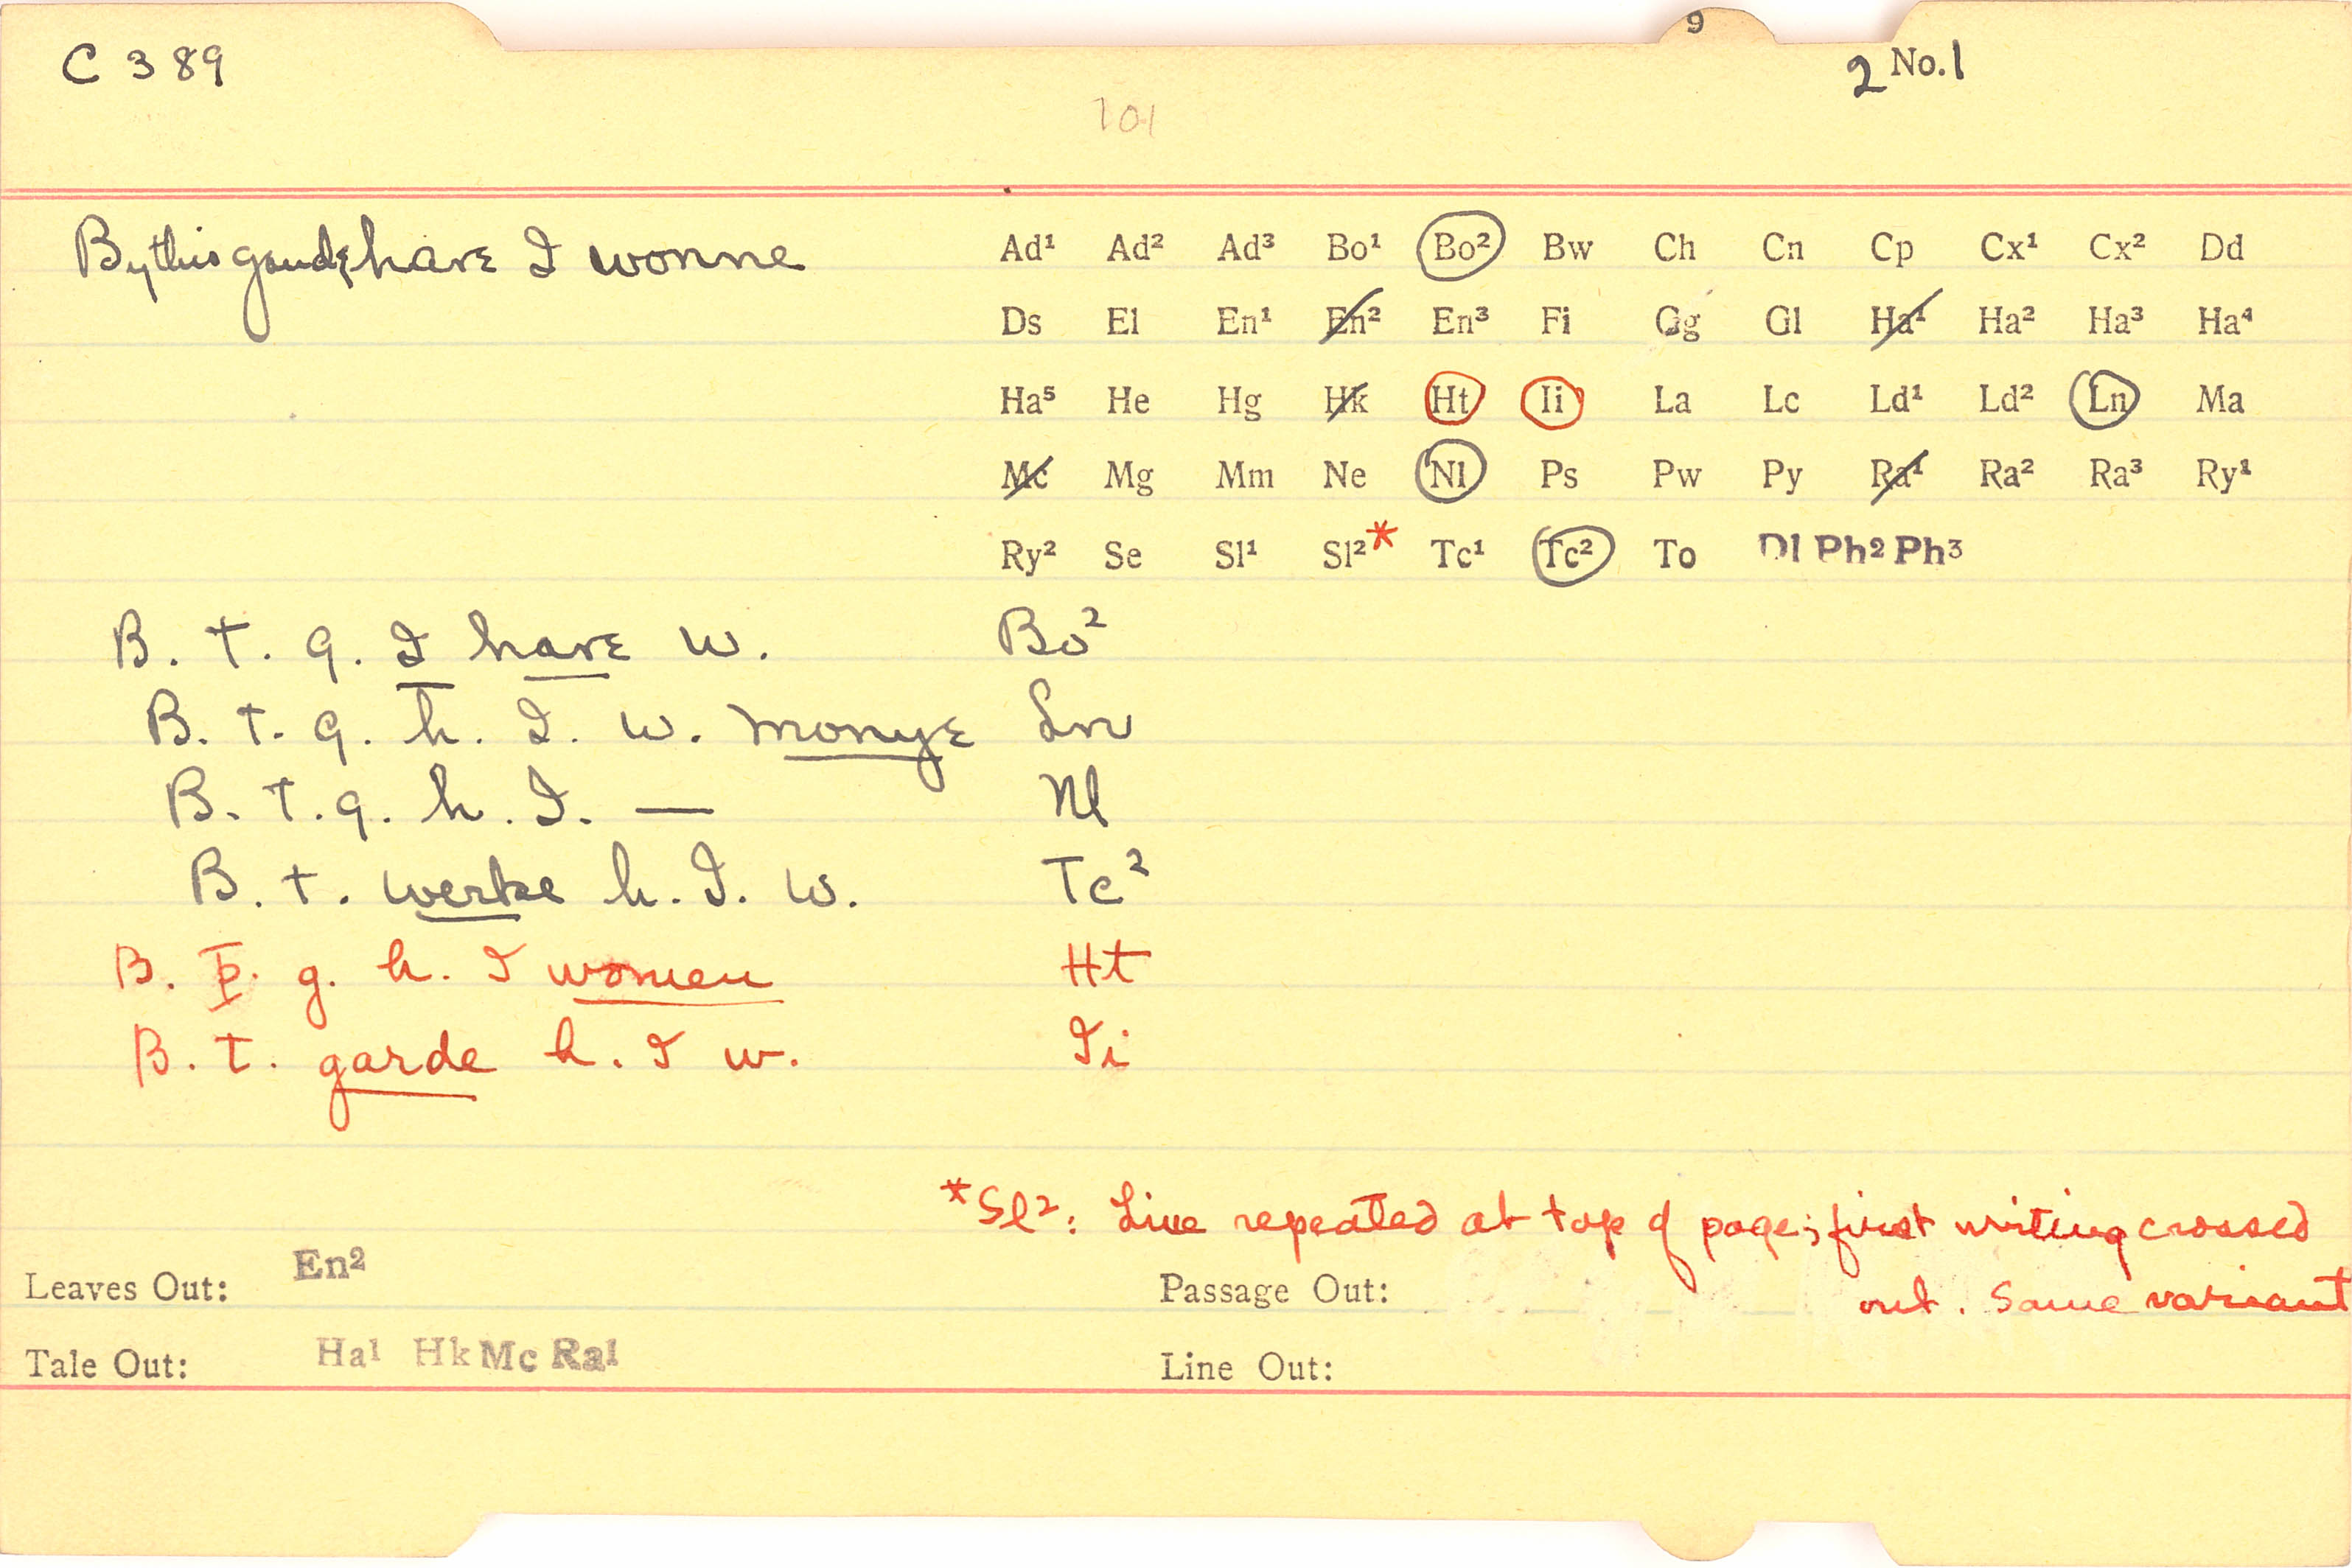 9
C 389
2 No. 1
101
By this gaude have I wonne
Ad¹ Ad² Ad³ Bo¹ Bo² Bw Ch Cn Cp Cx¹ Cx² Dd
Ds El En¹ En² En³ Fi Gg Gl Ha¹ Ha² Ha³ Ha⁴
Ha⁵ He Hg Hk Ht Ii La Lc Ld¹ Ld² Ln Ma
Mc Mg Mm Ne Nl Ps Pw Py Ra¹ Ra² Ra³ Ry¹
Ry² Se Sl¹ Sl²* Tc¹ Tc² To Dl Ph² Ph³
B. t. g. I have w. Bo²
B. t. g. h. I. w. monye Ln
B. t. g. h. I. — Nl
B. t. werke h. I. w. Tc²
B. þ. g. h. I women Ht
B. t. garde h. I w. Ii
*Sl²: Line repeated at top of page; first writing crossed
out. Same variant
Leaves Out: En²
Passage Out:
Tale Out: Ha¹ Hk Mc Ra¹
Line Out: